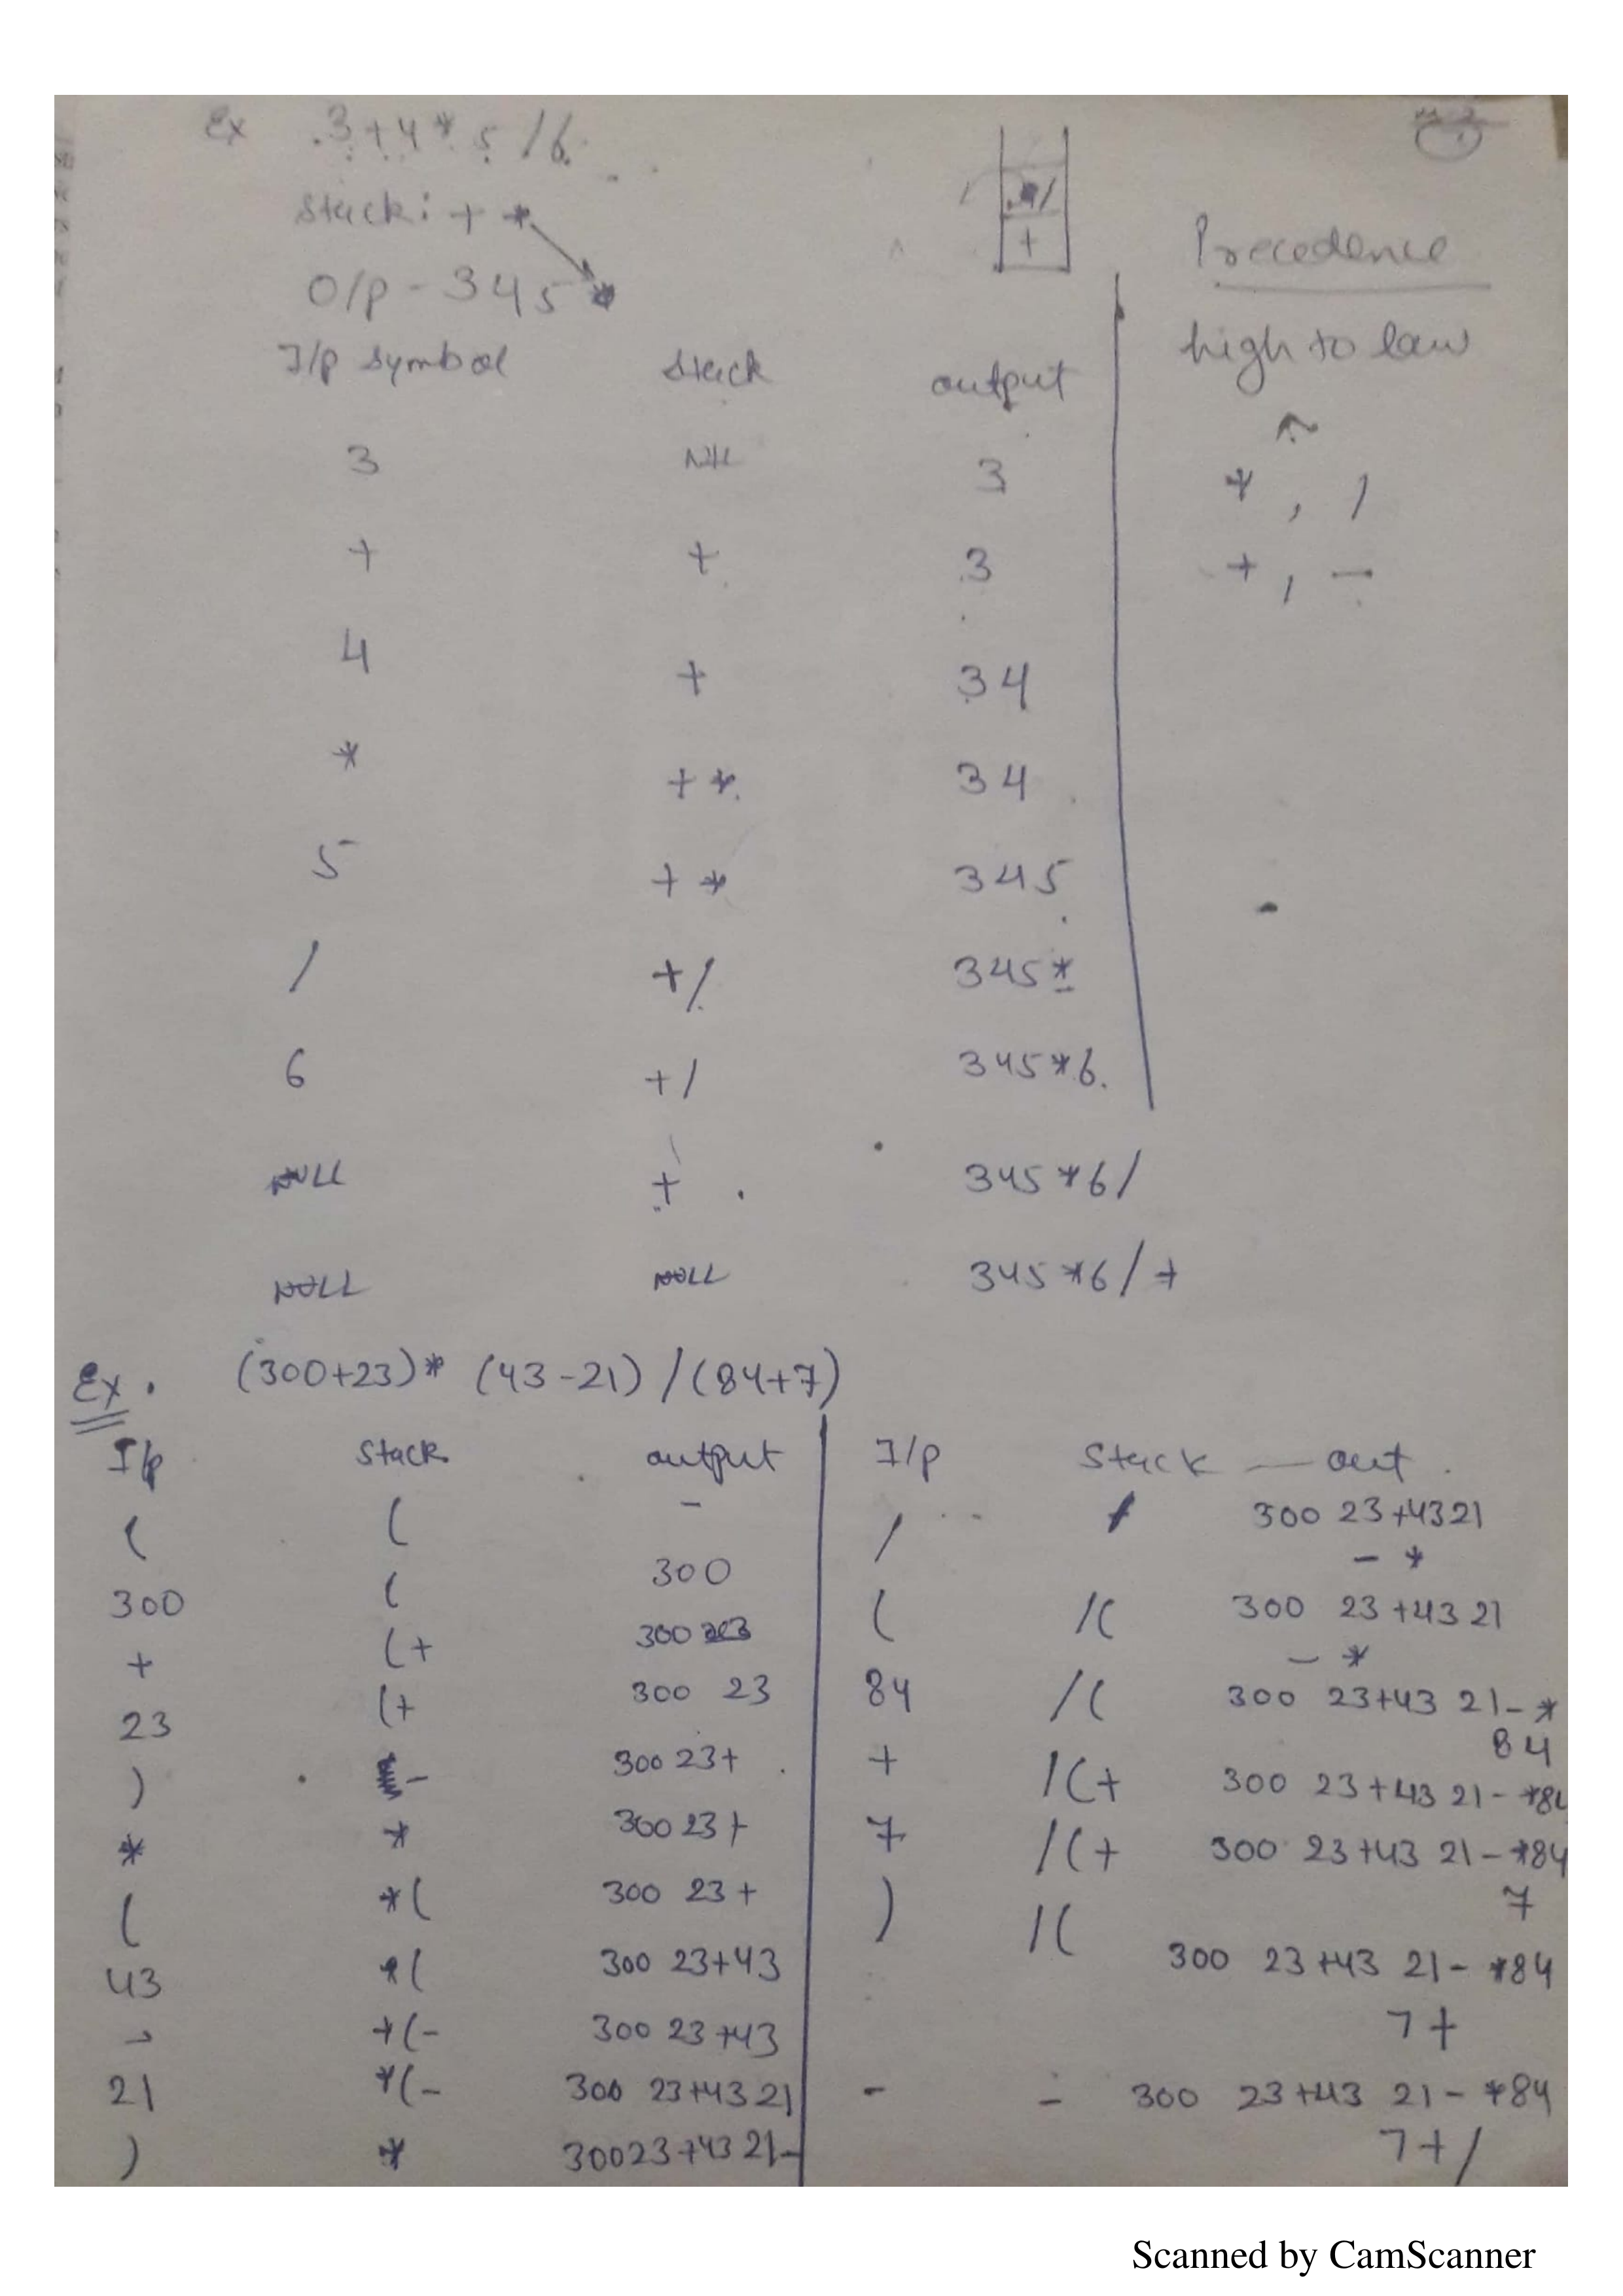 Ex 3+4*5/6
Stack: + *
O/p - 345*
Precedence
high to law
^
*, /
+, -
I/p symbol Stack output
3 Nil 3
+ + 3
4 + 34
* +* 34
5 +* 345
/ +/ 345*
6 +/ 345*6.
NULL + 345*6/
NULL NULL 345*6/+
Ex. (300+23)* (43-21)/(84+7)
I/p Stack output
( ( -
300 ( 300
+ (+ 300
23 (+ 300 23
) - 300 23+
* * 300 23+
( *( 300 23+
43 *( 300 23+43
- *(- 300 23+43
21 *(- 300 23+43 21
) * 300 23+43 21-
I/p Stack — out
/ / 300 23+43 21
- *
( /( 300 23+43 21
- *
84 /( 300 23+43 21-*
84
+ /(+ 300 23+43 21-*84
7 /(+ 300 23+43 21-*84
7
) /( 300 23+43 21-*84
7+
- - 300 23+43 21-*84
7+/
Scanned by CamScanner